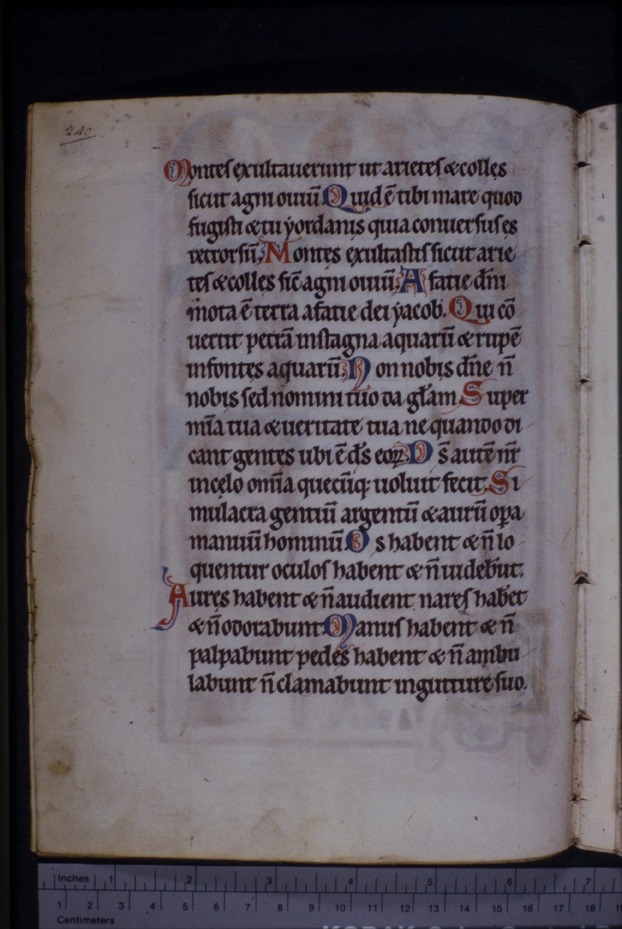 240
Montes exultauerunt ut arietes & colles
sicut agni ouiū. Quid ē tibi mare quod
fugisti & tu ẏordanis quia conuersus es
retrorsū. Montes exultastis sicut arie
tes & colles sic̄ agni ouiū. A facie dn̄i
mota ē terra a facie dei ẏacob. Qui cō
uertit petrā in stagna aquarū & rupē
in fontes aquarū. Non nobis dn̄e n̄
nobis sed nomini tuo da gl̄am Super
mīa tua & ueritate tua ne quando di
cant gentes ubi ē ds̄ eoꝝ. Ds̄ autē nr̄
in celo om̄ia quecūq; uoluit fecit. Si
mulacra gentiū argentū & aurū oꝑa
manuū hominū Os habent & n̄ lo
quentur oculos habent & n̄ uidebūt.
Aures habent & n̄ audient nares habēt
& n̄ odorabunt. Manus habent & n̄
palpabunt pedes habent & n̄ ambu
labunt n̄ clamabunt in gutture suo.
Inches 1 2 3 4 5 6 7
1 2 3 4 5 6 7 8 9 10 11 12 13 14 15 16 17 18
Centimeters